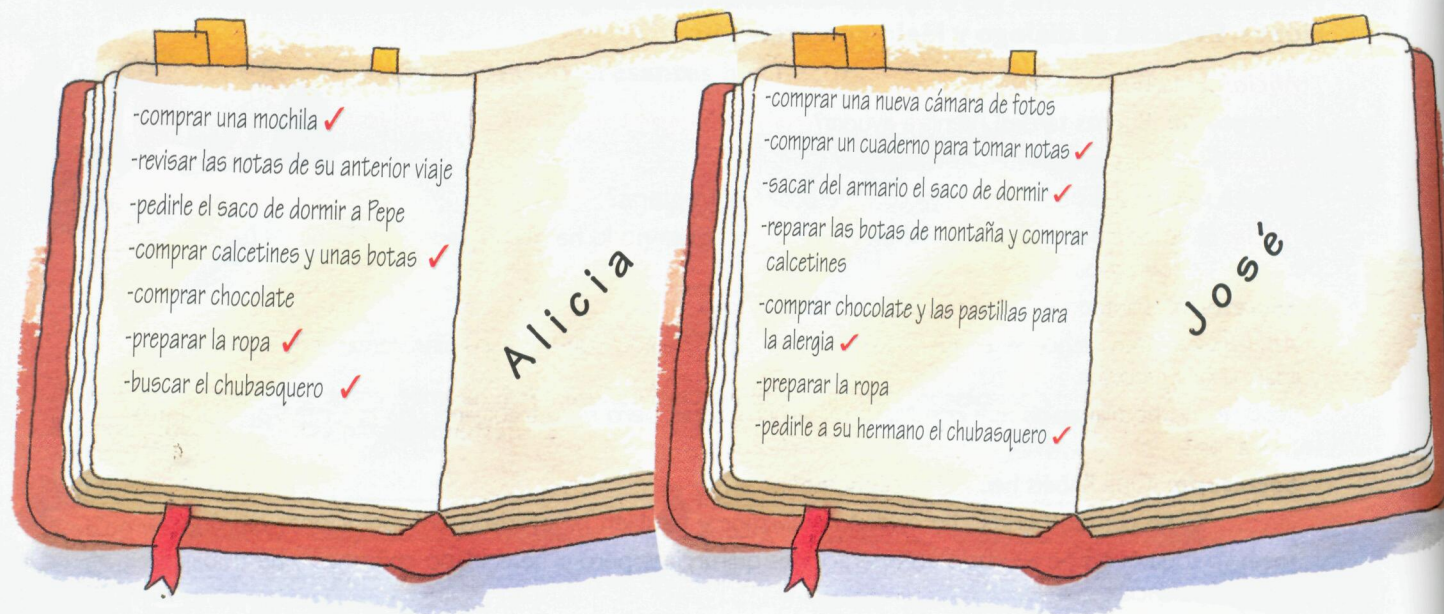 -comprar una mochila ✓
-revisar las notas de su anterior viaje
-pedirle el saco de dormir a Pepe
-comprar calcetines y unas botas ✓
-comprar chocolate
-preparar la ropa ✓
-buscar el chubasquero ✓
Alicia
-comprar una nueva cámara de fotos
-comprar un cuaderno para tomar notas ✓
-sacar del armario el saco de dormir ✓
-reparar las botas de montaña y comprar
calcetines
-comprar chocolate y las pastillas para
la alergia ✓
-preparar la ropa
-pedirle a su hermano el chubasquero ✓
José